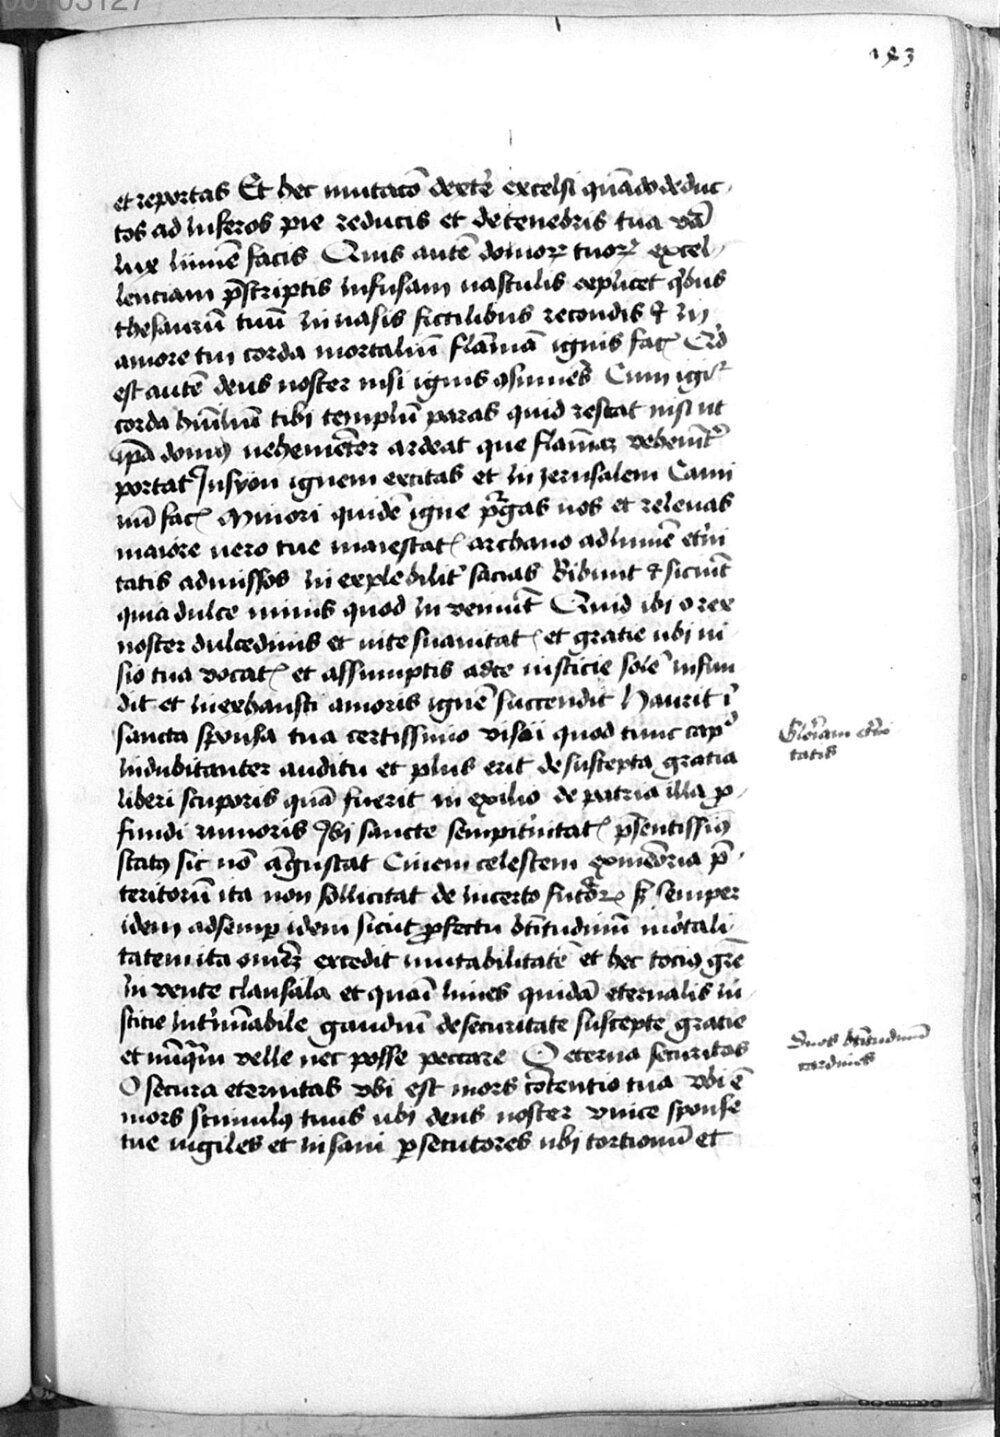 00103127
193
et reportas Et hec mutacō dextē excelsi quādo deduc
tos ad inferos pie reducis et de tenebris tua vā
lux lumē facis Quis autē donoꝝ tuoꝝ excel
lenciam p̄scriptis infusam vasculis explicet qͥbus
thesaurū tuū in vasis fictilibus recondis ⁊ in
amore tui corda mortaliū flāmā ignis fac
est autē deus noster nisi ignis ꝯsumēs Cum igiͬ
corda huīliū tibi templū paras quid restat nisi ut
ip̄a domꝰ vehemēter ardeat que flāmaꝫ
portat In syon ignem excitas et in Jerusalem Cami
nū fac Minori quidē igne pͬgas nos et relevas
maiore vero tue maiestat archano ad lumē et̄ni
tatis admissos in explebilit sacias Bibunt ⁊ siciūt
quia dulce nimis quod inveniūt Quid ibi o rex
noster dulcedinis et vite suavitat et gratie ubi vi
sio tua vocat et assumptis ad te iusticie solē infun
dit et inexhausti amoris ignē succendit Haurit ī
sancta sponsa tua certissimo visu quod tunc cap
indubitanter auditu et plus erit de suscepta gratia
liberi scuporis quā fuerit in exilio de patria illa ꝓ
fundi rumoris Ibi sancte sempit̄nitat p̄sentissimꝰ
statꝰ sic nō āgustat Civem celestem ex memoria p̄
teritorū ita non sollicitat de incerto futōrꝝ sꝫ semper
idem ad semp idem sicut ꝓfectu btītudinū mortali
tatem ita omēꝫ excedit mutabilitatē et hec tocius gr̄e
in vente clausula et quasi limes quidā eternalis iu
sticie int̄minabile gaudiū de securitate suscepte gratie
et nūqͣm velle nec posse peccare O eterna securitas
O secura eternitas vbi est mors cōtentio tua vbi ē
mors stimulus tuus ubi deus noster vnice sponse
tue vigiles et insani ꝑsecutores ubi tortionū et
Gloriam et̄ni
tatis
Duos btītudinū
cardines